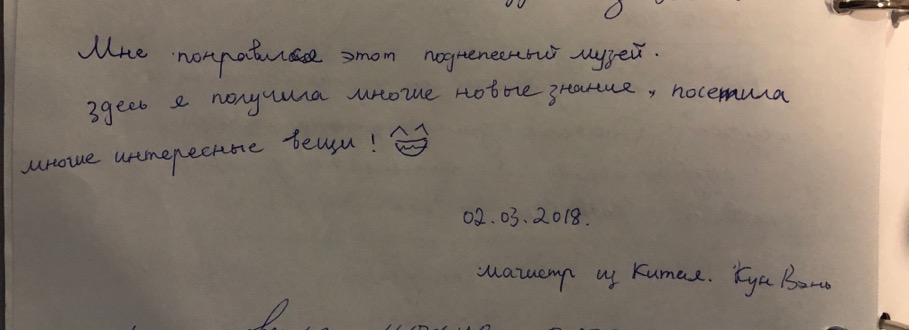 Мне понравился этот поднепесный музей.
Здесь я получила многие новые знание, посетила
многие интересные вещи!
02.03.2018.
магистр из Китая. Кун Вэнь